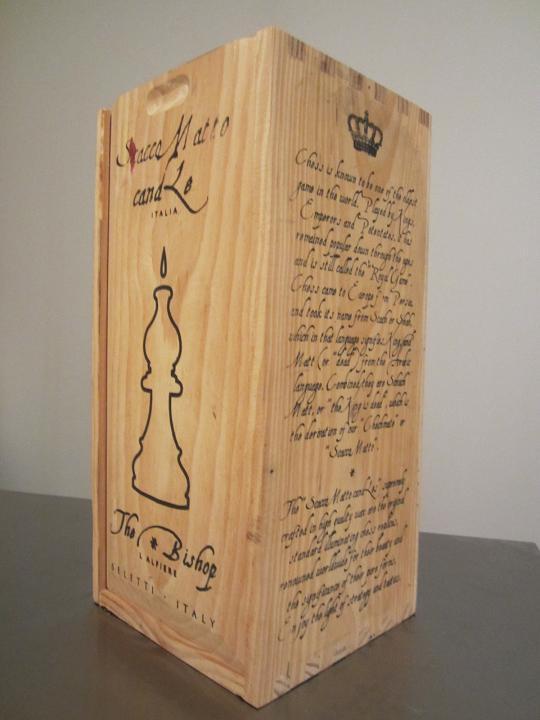 Scacco Matto
candLe
ITALIA
The Bishop
L'ALFIERE
SELETTI · ITALY
Chess is known to be one of the oldest
game in the world. Played by Kings,
Emperors and Potentates, it has
remained popular down through the ages
and is still called the "Royal Game".
Chess came to Europe from Persia,
and took its name from Scach or Shah,
which in that language signifies King, and
Matt (or "dead") from the Arabic
language. Combined, they are Schach
Matt, or "the King is dead", which is
the derivation of our "Checkmate" or
"Scacco Matto".
The "Scacco Matto candLes" supremely
crafted in high quality wax are the original
standard illuminating chess realism,
renowned worldwide for their beauty and
the significance of their pure forms.
Enjoy the light of strategy and tactics.